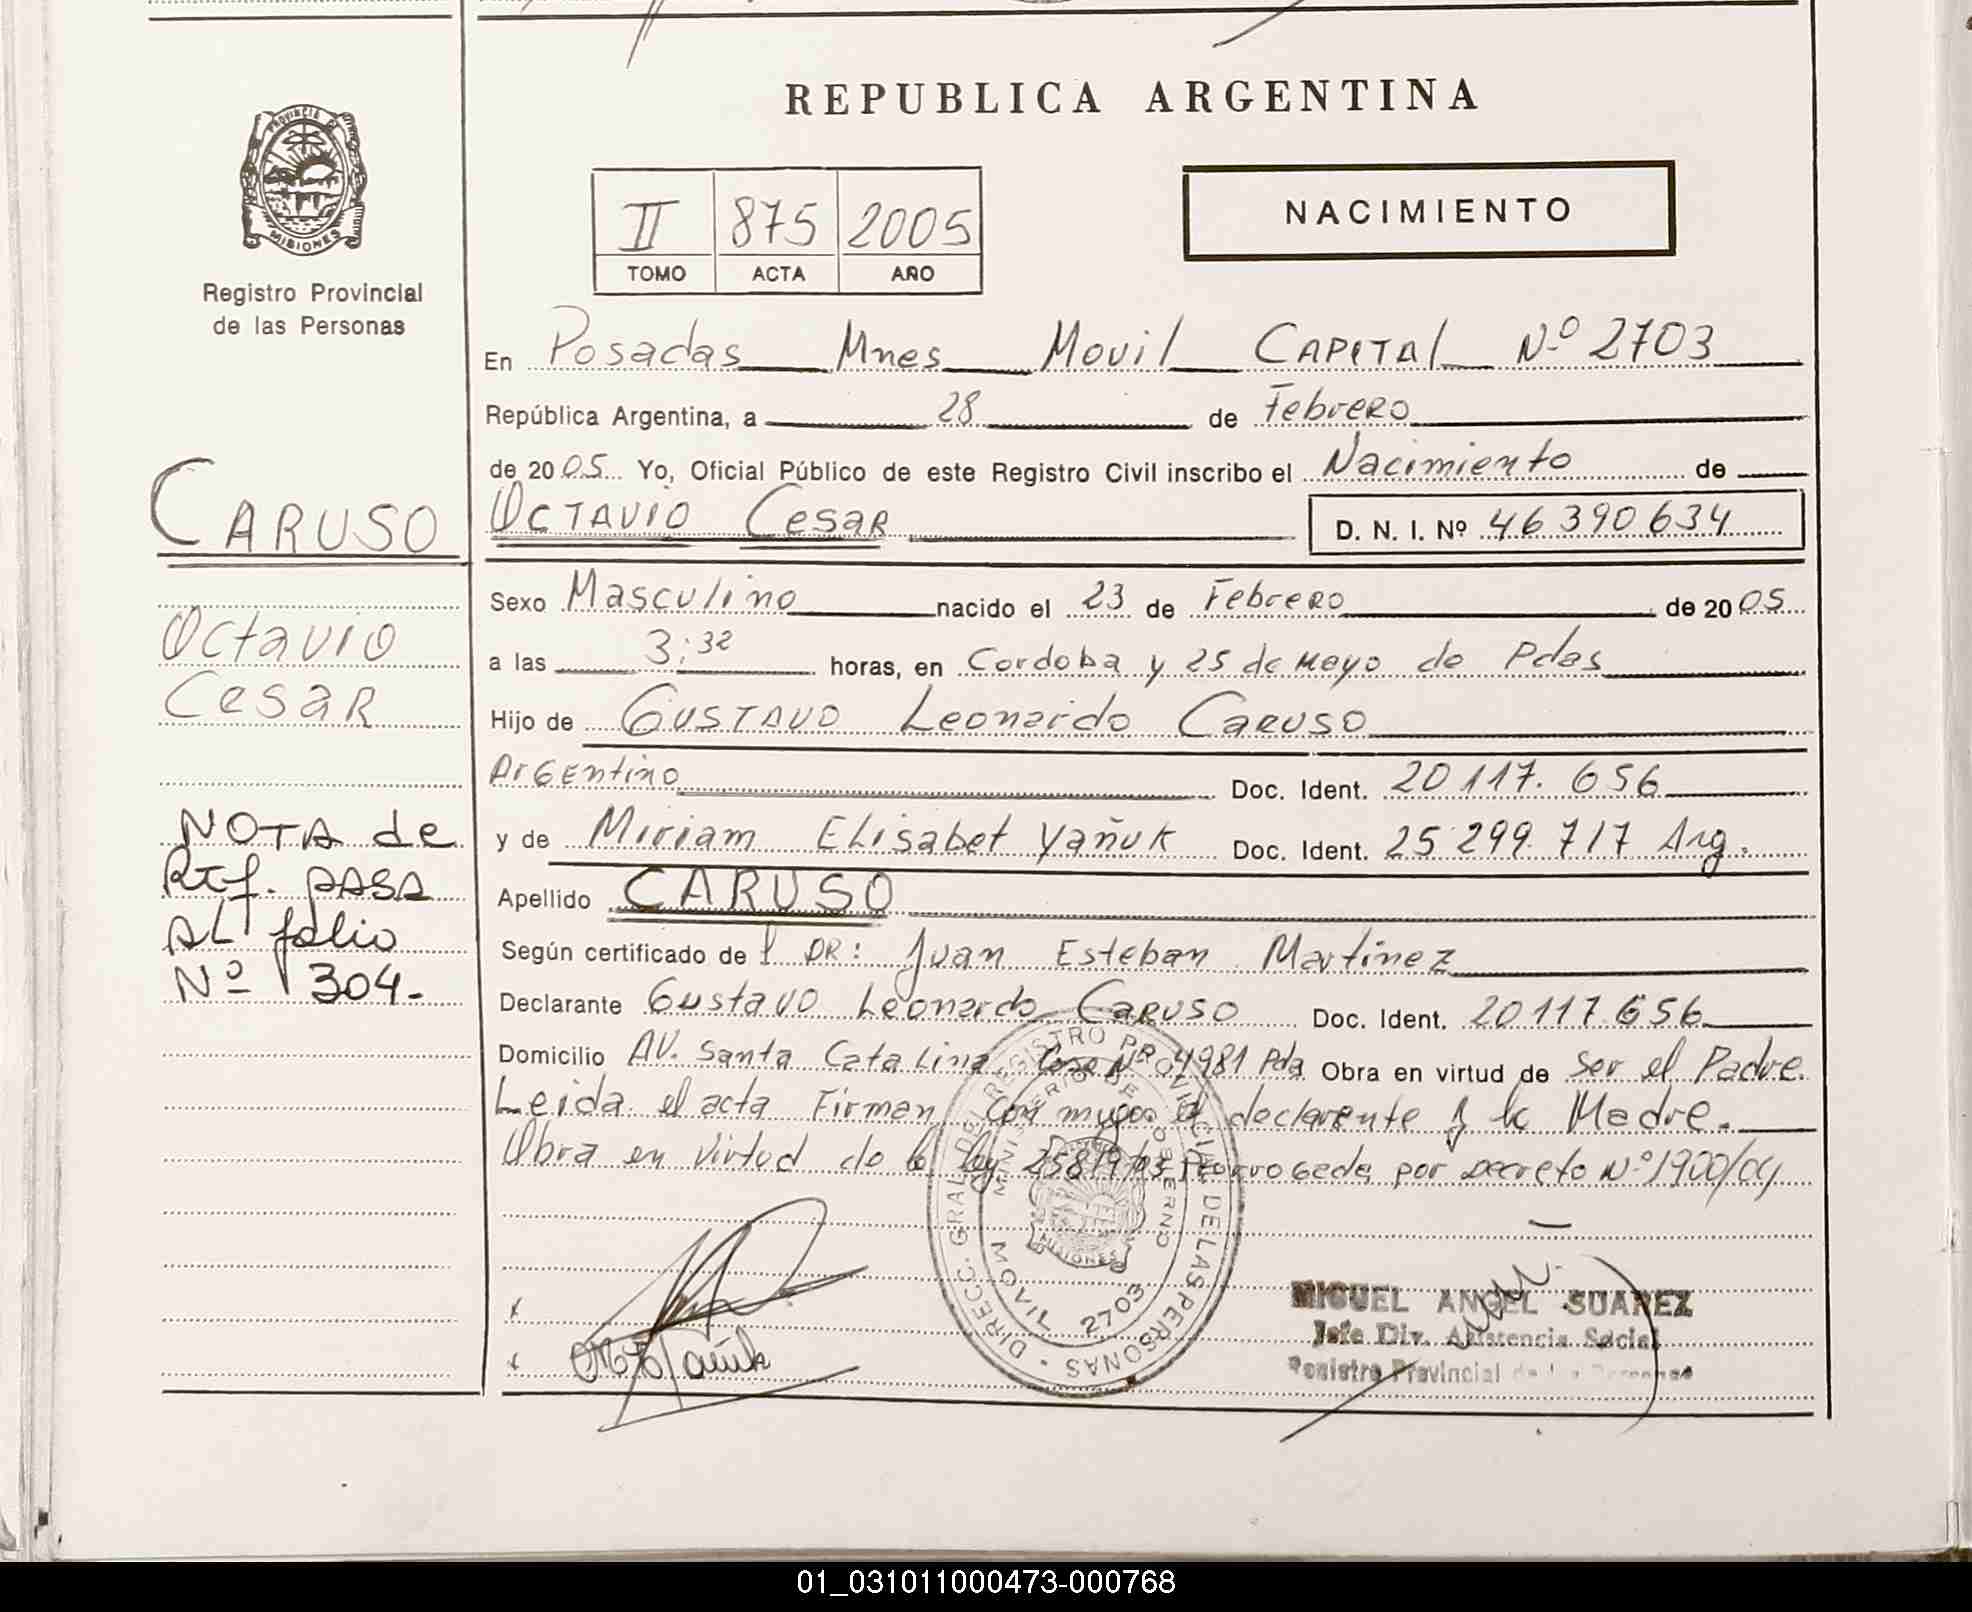 REPUBLICA ARGENTINA
PROVINCIA DE
MISIONES
Registro Provincial
de las Personas
II 875 2005
TOMO ACTA AÑO
NACIMIENTO
En Posadas Mnes Movil CAPITAl Nº 2703
República Argentina, a 28 de Febrero
de 2005 Yo, Oficial Público de este Registro Civil inscribo el Nacimiento de
OCTAVIO CesaR D. N. I. Nº 46 390 634
Sexo Masculino nacido el 23 de Febrero de 2005
a las 3:32 horas, en Cordoba y 25 de Mayo de Pdas
Hijo de GUSTAVO Leonardo CARUSO
Argentino Doc. Ident. 20 117. 656
y de Miriam Elisabet Yañuk Doc. Ident. 25 299. 717 Arg.
Apellido CARUSO
Según certificado del DR: Juan Esteban Martinez
Declarante Gustavo Leonardo CARUSO Doc. Ident. 20 117.656
Domicilio AV. Santa Catalina Casa Nº 4981 Pda Obra en virtud de Ser el Padre.
Leida el acta Firman con migo el declarante y la Madre.
Obra en virtud de la ley 25819/03 Prorrogada por Decreto Nº 1900/04
CARUSO
Octavio
CesaR
NOTA de
Ref. PASA
AL folio
Nº 304.-
DIRECC. GRAL. DEL REGISTRO PROVINCIAL DE LAS PERSONAS
MINISTERIO DE GOBIERNO
MISIONES
MOVIL 2703
x
x
MIGUEL ANGEL SUAREZ
Jefe Div. Asistencia Social
Registro Provincial de las Personas
01_031011000473-000768